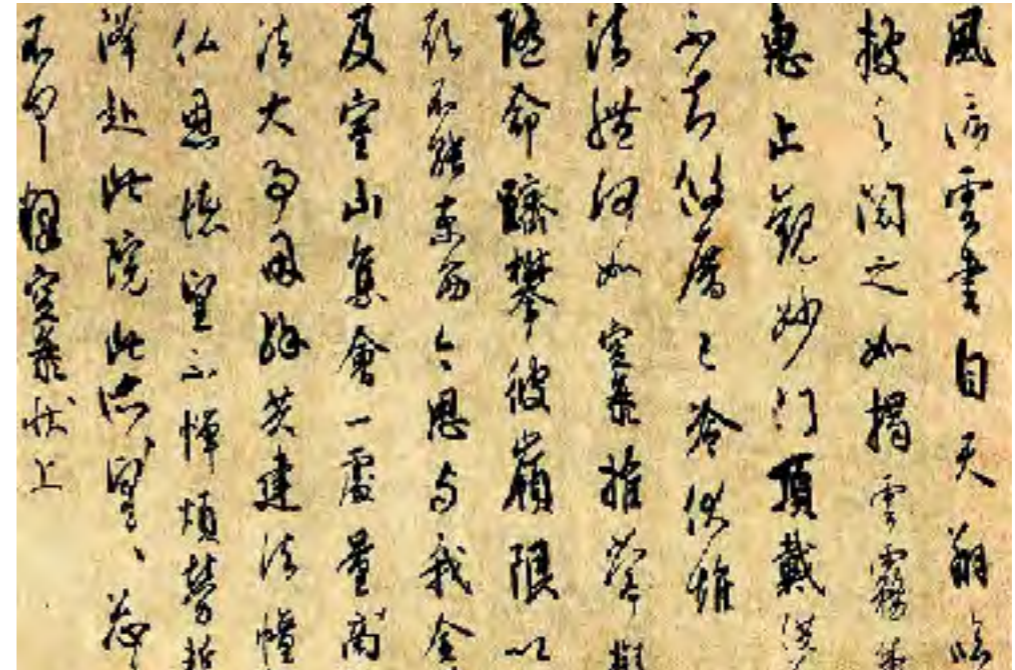 風信雲書自天翔臨
披之閱之如揭雲霧兼
惠止觀妙門頂戴供
不知攸厝已冷伏惟
法體何如空海推常擬
隨命躋攀彼嶺限以
願不能東西今思与我金
及室山集會一處量商
法大事因緣共建法幢
仏恩德望不憚煩勞蹔
降赴此院此所望〻忩
不具釋空海狀上